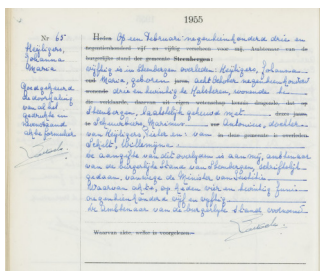 1955
Nr 65
Heijligers,
Johanna
Maria
Goedgekeurd
de doorhaling
van al het
gedrukte in
nevenstaand
akte formulier
Heden Op een Februari negentienhonderd drie en
negentienhonderd vijf en vijftig verscheen voor mij, Ambtenaar van de
burgerlijke stand der gemeente Steenbergen:
vijftig is in Steenbergen overleden Heijligers, Johanna
Maria, geboren acht October negentienhonderd
drie en twintig te Halsteren, wonende in
die verklaarde, daarvan uit eigen wetenschap kennis dragende, dat op
Steenbergen, laatstelijk gehuwd met
Marinus Antonius, dochter
van Heijligers, Pieter en van in deze gemeente is overleden
Willemijna.
De aangifte van dit overlijden is aan mij, ambtenaar
van de burgerlijke Stand van Steenbergen, schriftelijk
gedaan, vanwege de Minister van Justitie.
Waarvan akte, op heden vier en twintig Juni
negentienhonderd vijf en vijftig.
De Ambtenaar van de burgerlijke Stand voornoemd
Waarvan akte, welke is voorgelezen